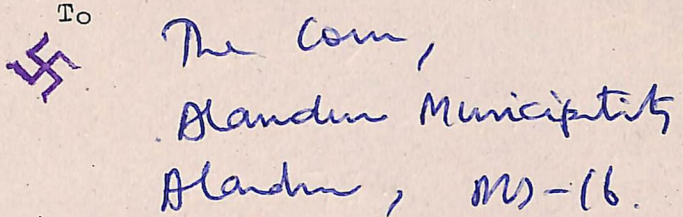 To
The Com,
Alandur Municipality
Alandur, MS-16.